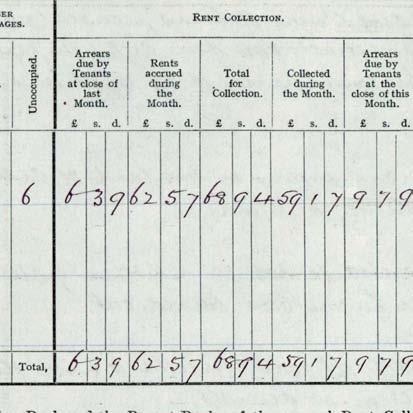 ER
AGES.
RENT COLLECTION.
Unoccupied.
Arrears due by Tenants at close of last Month.
Rents accrued during the Month.
Total for Collection.
Collected during the Month.
Arrears due by Tenants at the close of this Month.
£ s. d. £ s. d. £ s. d. £ s. d. £ s. d.
6 6 3 9 62 5 7 68 9 4 59 1 7 9 7 9
Total, 6 3 9 62 5 7 68 9 4 59 1 7 9 7 9